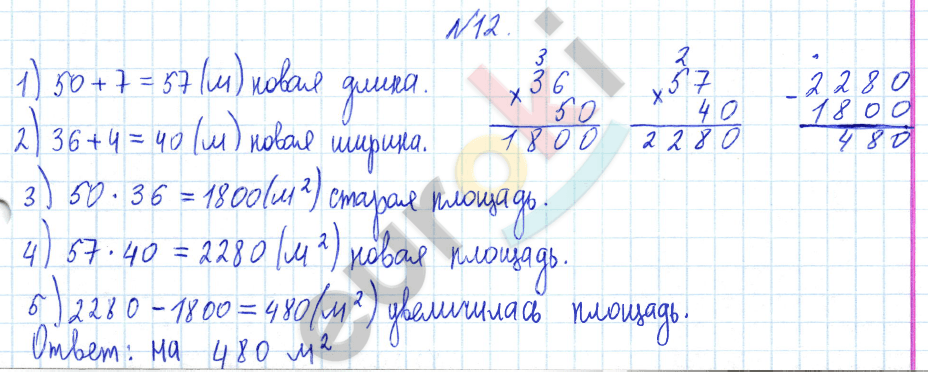 №12.
1) 50 + 7 = 57 (м) новая длина.
2) 36 + 4 = 40 (м) новая ширина.
3) 50 · 36 = 1800 (м²) старая площадь.
4) 57 · 40 = 2280 (м²) новая площадь.
5) 2280 − 1800 = 480 (м²) увеличилась площадь.
Ответ: на 480 м²
3
× 36
50
1800
2
× 57
40
2280
− 2280
1800
480
euroki